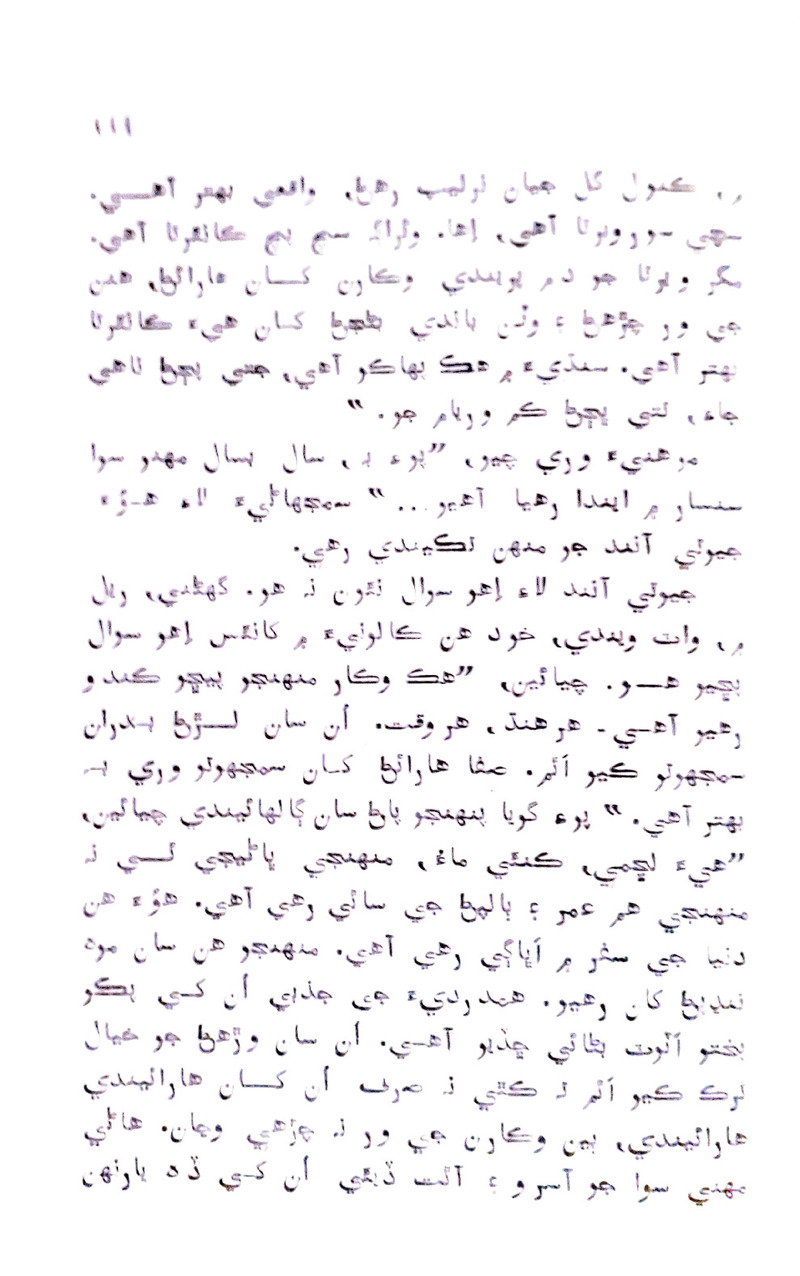 ۱۱۱
۾، ڪنول گل جيان نرليپ رهڻ، واقعي بهتر آهي.
سچي سورويرتا آهي، اها. وڻراڳ سڀ پڄ ڪائرتا آهي.
مگر ويرتا جو دم ڀريندي وڪارن کان هارائڻ، هنن
جي ور چڙهڻ ۽ وٽن باندي بڻجڻ کان هيءَ ڪائرتا
بهتر آهي. سنڌيءَ ۾ هڪ پهاڪو آهي، جتي بچڻ ناهي
جاءِ، تتي ڀڄڻ ڪم وريام جو. “
موهنيءَ وري چيو، ”پوءِ به، سال بسال مهنو سوا
سنسار ۾ ايندا رهيا آهيو... “ سمجهاڻيءَ لاءِ هوءَ
جيوتي آنند جو منهن تڪيندي رهي.
جيوتي آنند لاءِ اهو سوال نئون نه هو. گهڻندي، ريل
۾، واٽ ويندي، خود هن ڪالونيءَ ۾ کانئس اهو سوال
پڇيو هو. چيائين، ”هڪ وڪار منهنجو پيڇو ڪندو
رهيو آهي- هر هنڌ، هر وقت. اُن سان لڙڻ بدران
سمجهوتو ڪيو اٿم. صفا هارائڻ کان سمجهوتو وري به
بهتر آهي. “ پوءِ گويا پنهنجو پاڻ سان ڳالهائيندي چيائين،
”هيءَ لڇمي، ڪنئي ماءُ، منهنجي ڀاڻيجي ٿي نه
منهنجي هم عمر ۽ ٻالپڻ جي ساٿي رهي آهي. هوءَ هن
دنيا جي سفر ۾ اڀاڳي رهي آهي. منهنجو هن سان موهه
ننڍپڻ کان رهيو. همدرديءَ جي جذبي اُن کي پڪو
پختو اڻوٽ بڻائي ڇڏيو آهي. اُن سان وڙهڻ جو خيال
ترڪ ڪيو اٿم ته ڪٿي نه صرف اُن کان هارائيندي
هارائيندي، ٻين وڪارن جي ور نه چڙهي وڃان. هاڻي
مهني سوا جو آسرو ۽ آٿت ڏيئي اُن کي ڏهه يارنهن